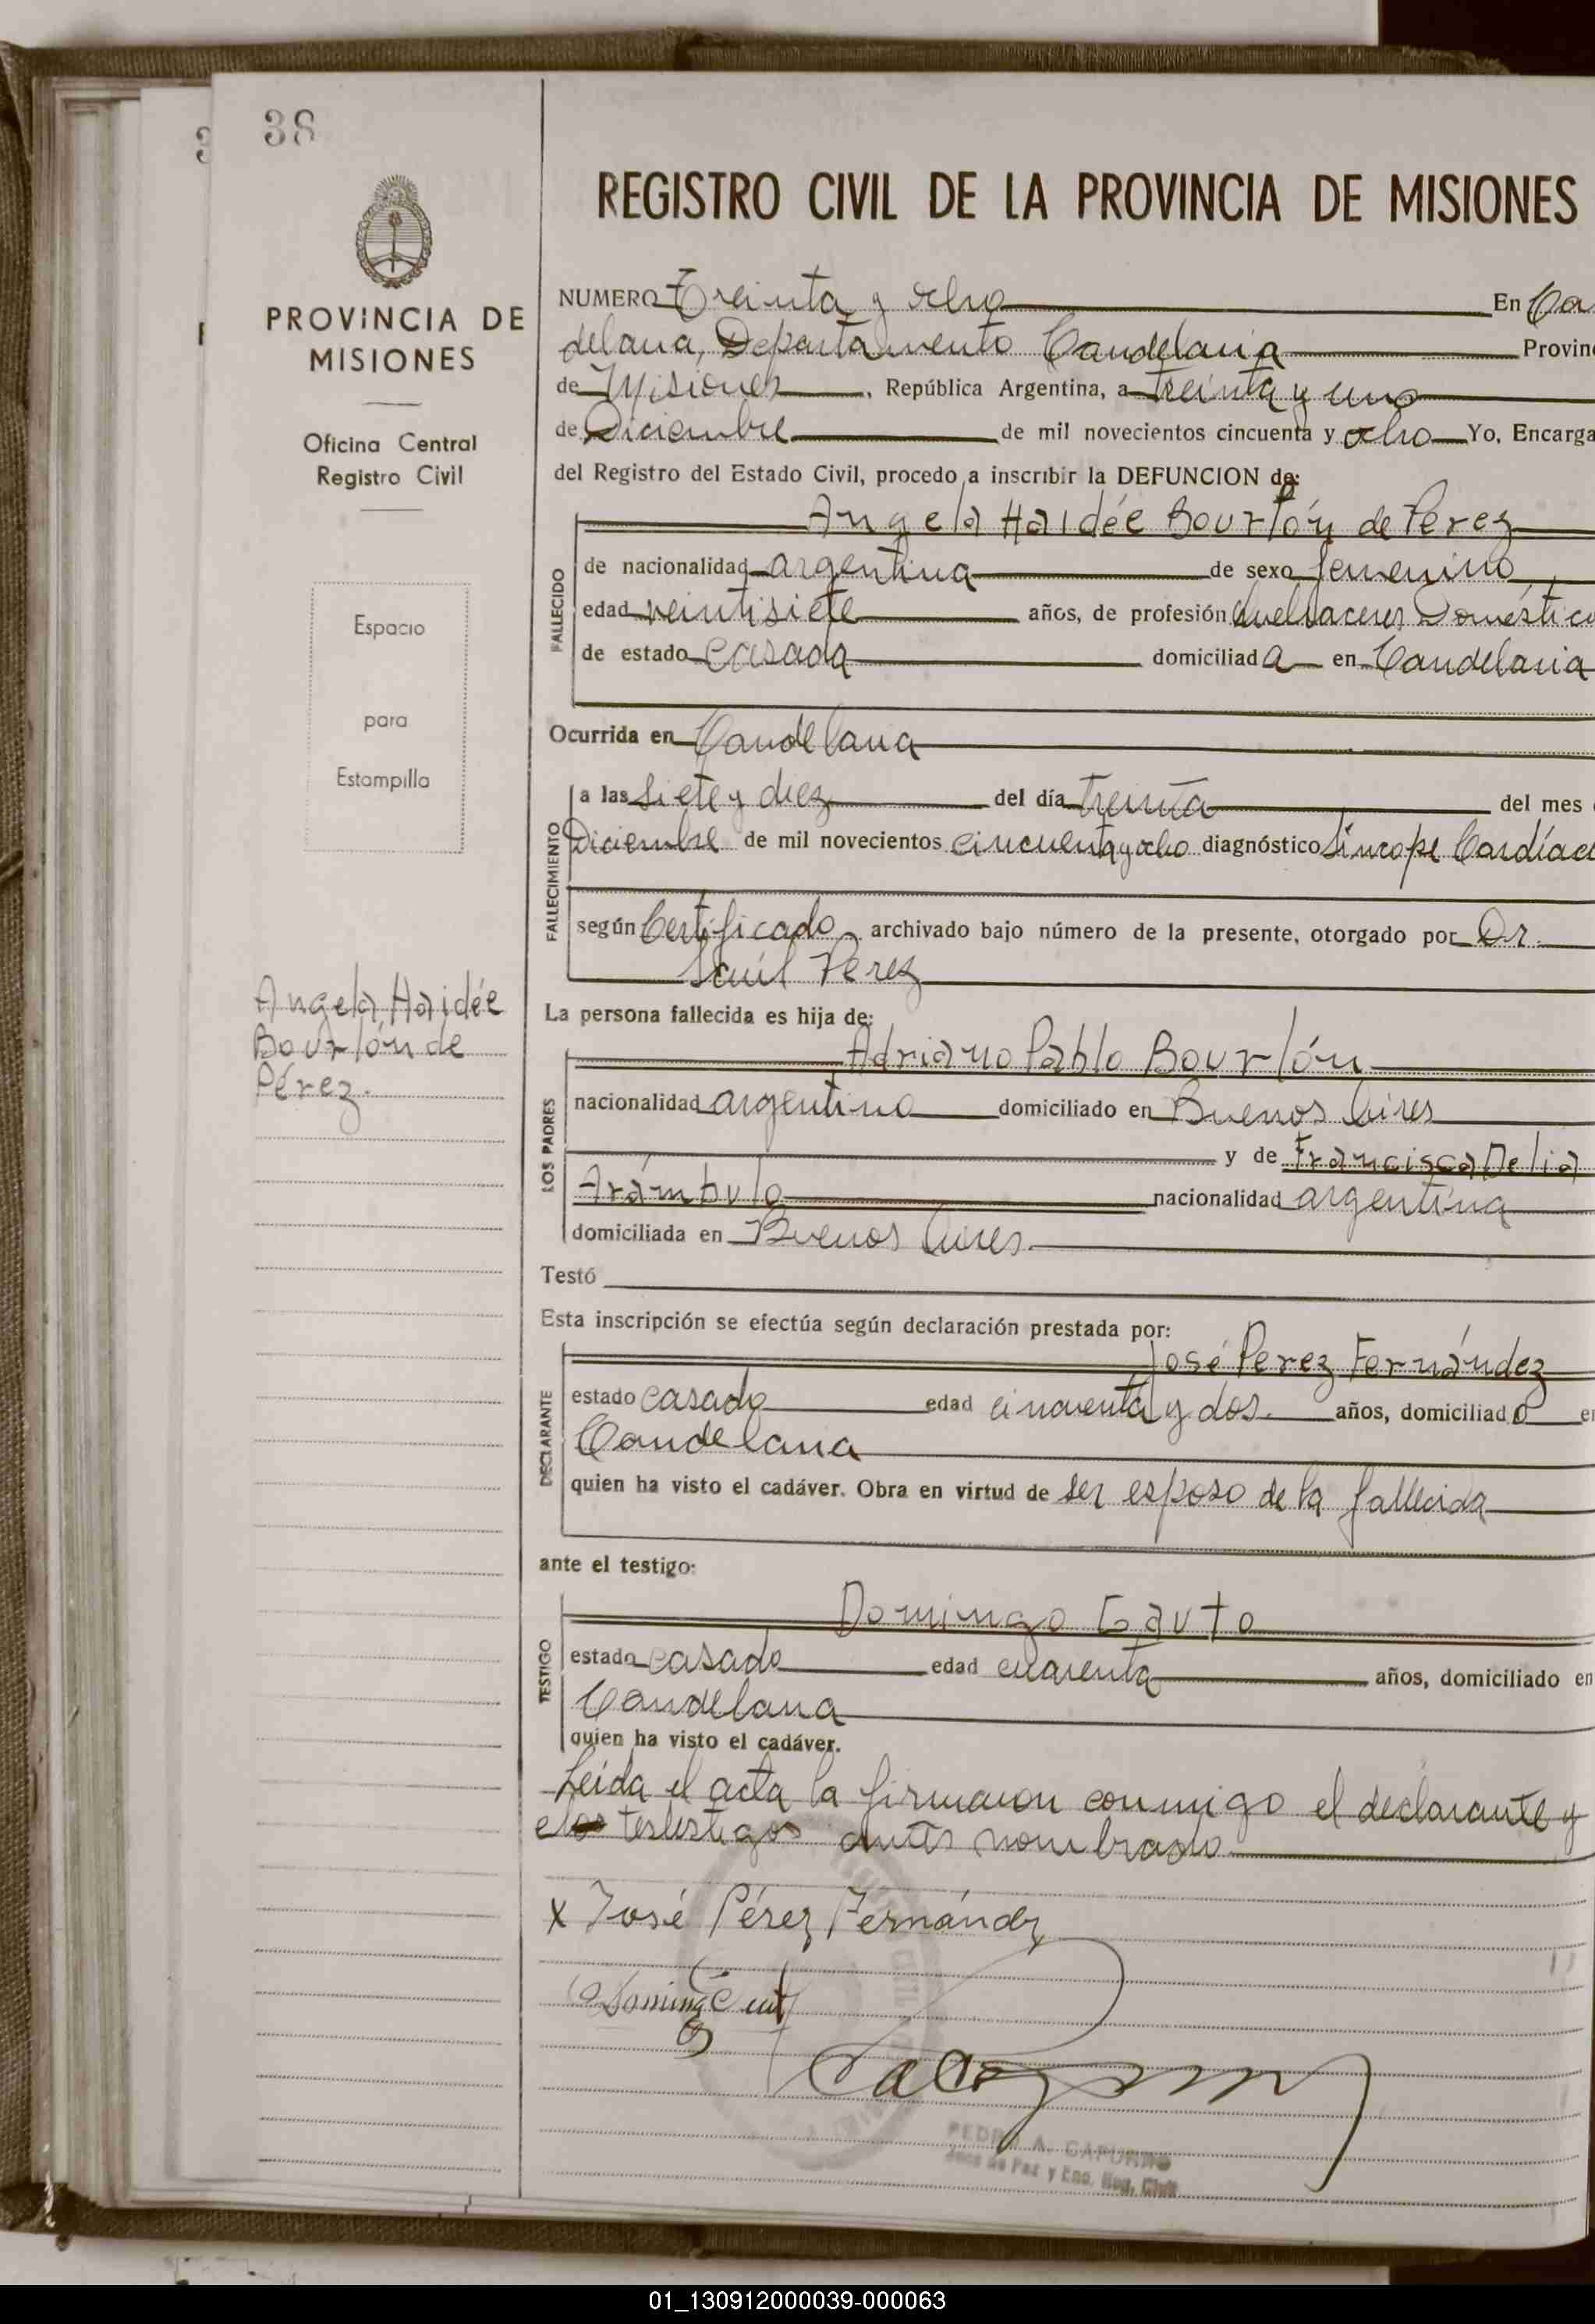 38
PROVINCIA DE
MISIONES
Oficina Central
Registro Civil
Espacio
para
Estampilla
Angela Haidée
Bourlón de
Pérez.
REGISTRO CIVIL DE LA PROVINCIA DE MISIONES
NUMERO Treinta y ocho En Can
delaria, Departamento Candelaria Provin
de Misiones, República Argentina, a treinta y uno
de Diciembre de mil novecientos cincuenta y ocho Yo, Encarga
del Registro del Estado Civil, procedo a inscribir la DEFUNCION de:
FALLECIDO
Angela Haidée Bourlón de Perez
de nacionalidad argentina de sexo femenino
edad veintisiete años, de profesión quehaceres Doméstico
de estado casada domiciliada en Candelaria
Ocurrida en Candelaria
FALLECIMIENTO
a las siete y diez del día treinta del mes
Diciembre de mil novecientos cincuenta y ocho diagnóstico Sincope Cardíac
según Certificado archivado bajo número de la presente, otorgado por Dr.
Saúl Perez
La persona fallecida es hija de:
LOS PADRES
Adriano Pablo Bourlón
nacionalidad argentino domiciliado en Buenos Aires
y de Francisca Delia
Arámbulo nacionalidad argentina
domiciliada en Buenos Aires.
Testó
Esta inscripción se efectúa según declaración prestada por:
DECLARANTE
José Perez Fernández
estado casado edad cincuenta y dos. años, domiciliado en
Candelaria
quien ha visto el cadáver. Obra en virtud de ser esposo de la fallecida
ante el testigo:
TESTIGO
Domingo Gauto
estado casado edad cuarenta años, domiciliado en
Candelaria
quien ha visto el cadáver.
Leida el acta la firmaron conmigo el declarante y
testestigos antes nombrado
x José Pérez Fernández
PEDRO A. CAPURRO
Juez de Paz y Enc. Reg. Civil
01_130912000039-000063